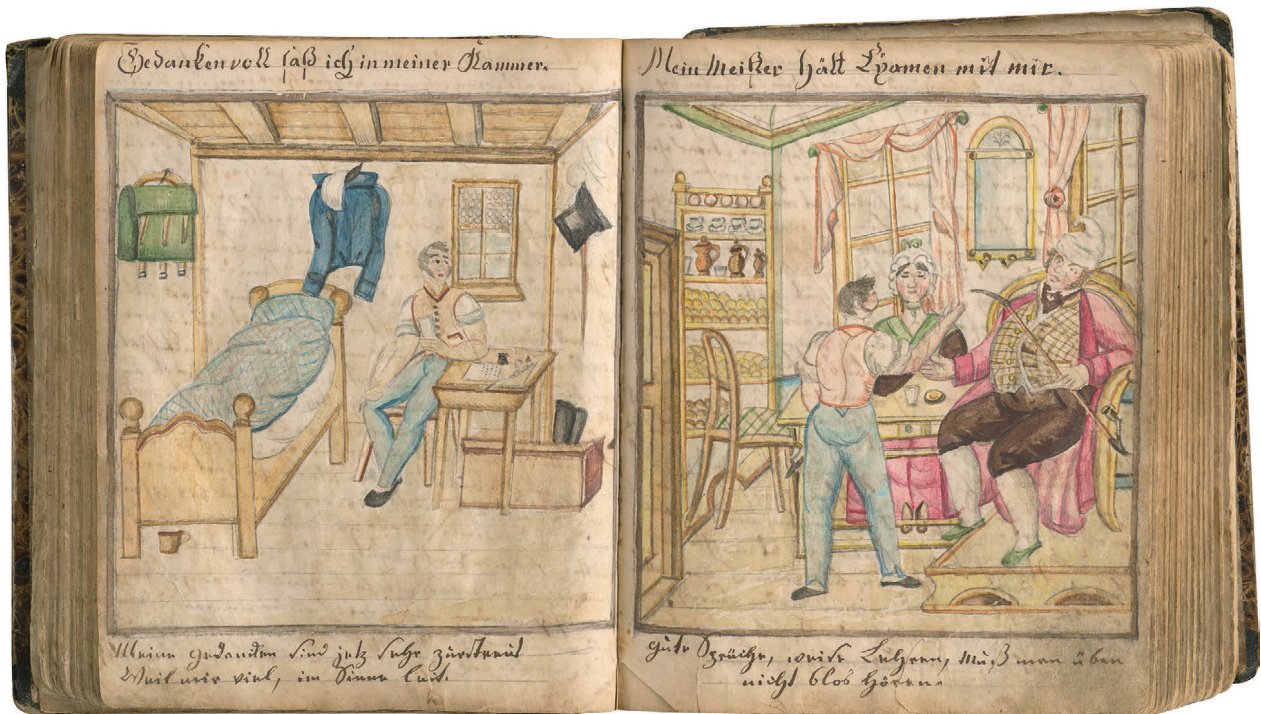 Gedankenvoll saß ich in meiner Kammer.
Meine gedanken sind jetz sehr zerstreut
Weil mir viel, im Sinne
Mein Meister hält Examen mit mir.
gute Sprüche, weise Lehren, Muß man üben
nicht blos hören.